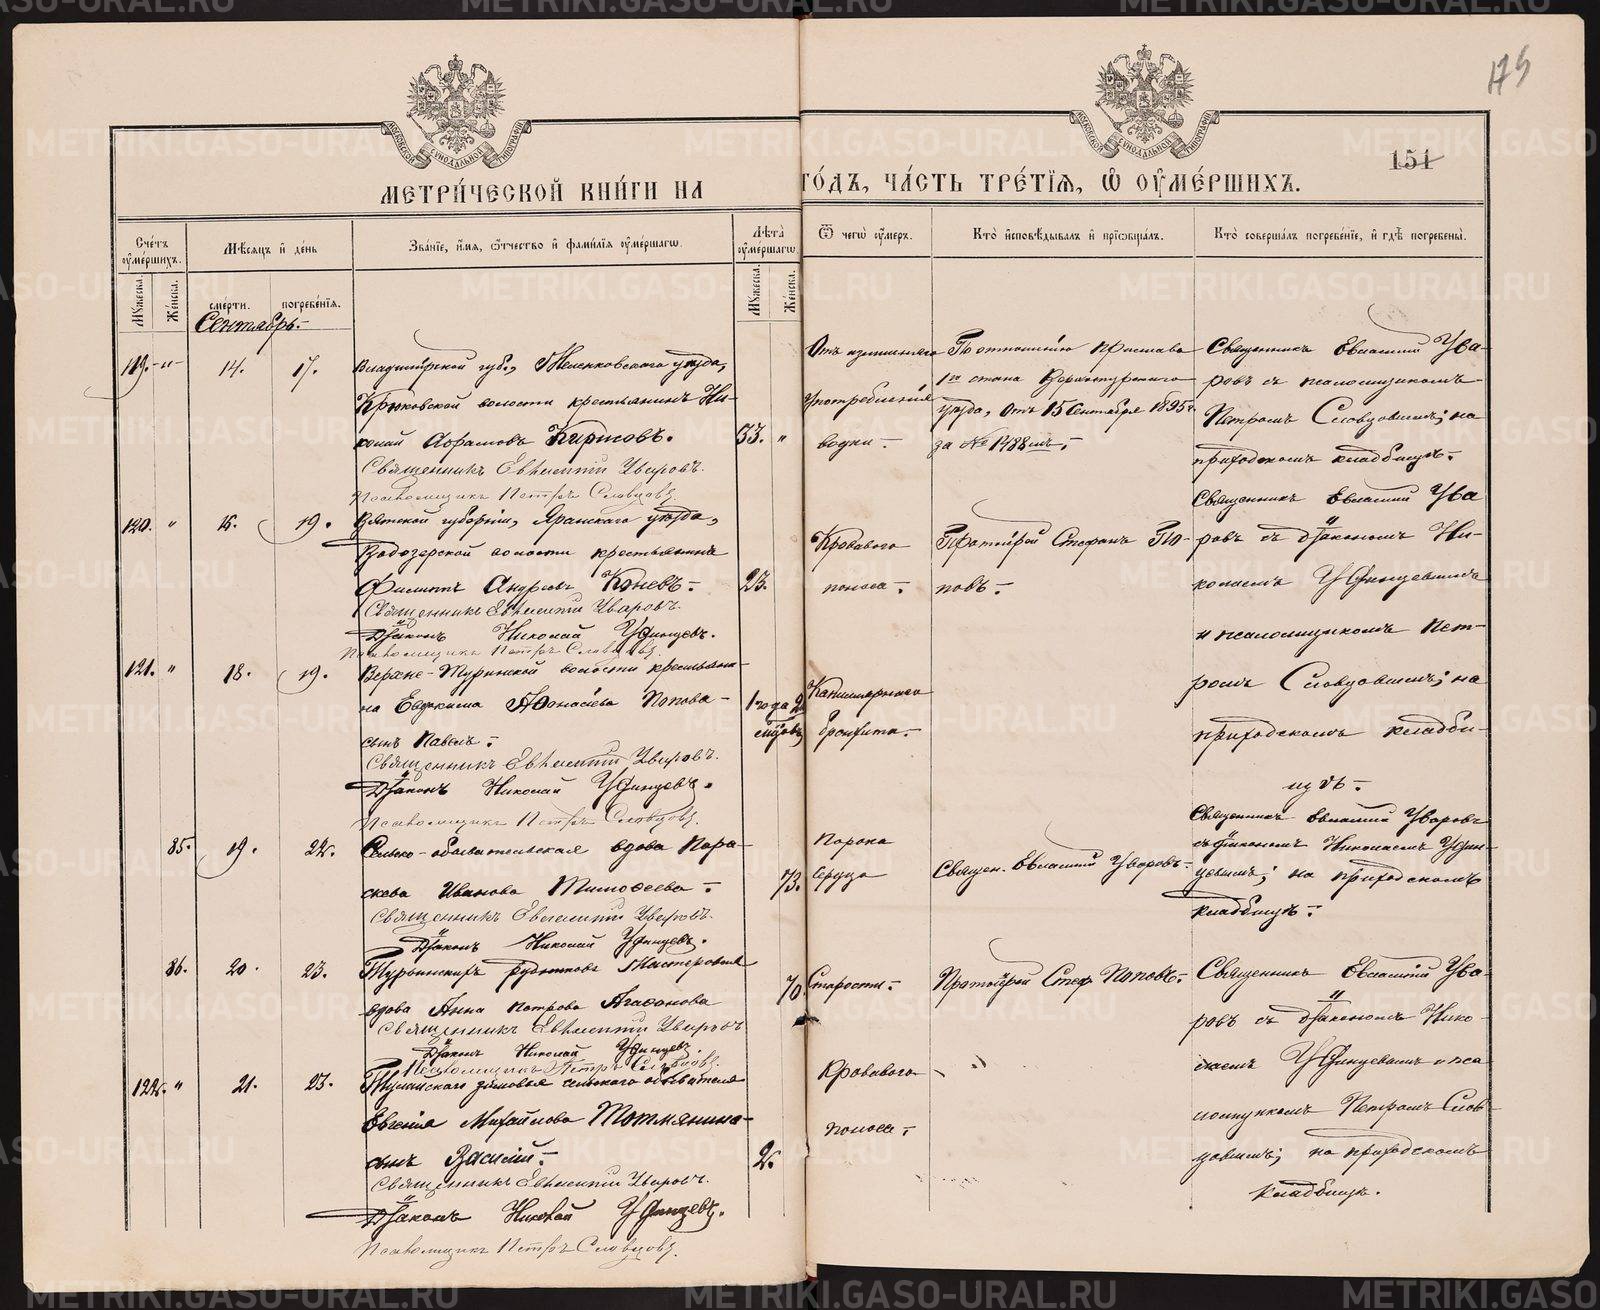 175
151
МЕТРИ́ЧЕСКОЙ КНИ́ГИ НА ГО́ДЪ, ЧА́СТЬ ТРЕ́ТІѦ, Ѡ ОУМЕ́РШИХЪ.
Сче́тъ оуме́ршихъ.
Мꙋжеска.
Же́нска.
Мѣ́сѧцъ и де́нь
сме́рти.
погребе́нїѧ.
Зва́нїе, и́мѧ, ѻ҆́тчество и фами́лїѧ оуме́ршагѡ.
Лѣта̀ оуме́ршагѡ.
Мꙋжеска.
Же́нска.
Ѿ чегѡ̀ оу́меръ.
Кто̀ исповѣ́дывалъ и прїѡбща́лъ.
Кто̀ соверша́лъ погребе́нїе, и гдѣ̀ погребены̀.
Сентябрь.-
119.-"-
14.
17.
Владимірской губ., Меленковского уѣзда,
Крюковской волости крестьянинъ Ни-
колай Абрамовъ
33. "
Священникъ Евѳимій Уваровъ.
Псаломщикъ Петръ Словцовъ.
Отъ излишняго
употребленія
водки.-
По отношенію пристава
1го стана Верхотурского
уѣзда, отъ 15 Сентября 1895г.
за № 1488мъ.-
Священникъ Евѳимій Ува-
ровъ съ псаломщикомъ
Петромъ Словцовымъ; на
приходскомъ кладбищѣ.-
120. "
15.
19.
Вятской губерніи, Яранскаго уѣзда,
волости крестьянинъ
Филиппъ Андреевъ Коневъ.-
23.
Священникъ Евѳимій Уваровъ.
Діаконъ Николай Удинцевъ.
Псаломщикъ Петръ Словцовъ.
Кроваваго
поноса.-
Протоіерей Стефанъ По-
повъ.-
Священникъ Евѳимій Ува
ровъ съ діакономъ Ни-
колаемъ Удинцевымъ
и псаломщикомъ Пет-
ромъ Словцовымъ; на
приходскомъ кладби-
щѣ.-
121. "
18.
19.
Верхне-Туринской волости крестьяни-
на Евдокима Аѳонасіева Попова-
сынъ Павелъ.-
1 года 2
мѣсяц.
Священникъ Евѳимій Уваровъ.
Діаконъ Николай Удинцевъ.
Псаломщикъ Петръ Словцовъ.
Капиллярнаго
бронхита.-
85.
19.
22.
Сельско-обывательская вдова Пара-
скева Иванова Тимоѳеева.-
73.
Священникъ Евѳимій Уваровъ.
Діаконъ Николай Удинцевъ.
Порока
сердца
Священ. Евѳимій Уваровъ.-
Священникъ Евѳимій Уваровъ
съ діакономъ Николаемъ Удин-
цевымъ; на приходскомъ
кладбищѣ.-
86.
20.
23.
Турьинскихъ рудниковъ мастерская
вдова Анна Петрова Агаѳонова
70.
Священникъ Евѳимій Уваровъ
Діаконъ Николай Удинцевъ.
Псаломщикъ Петръ Словцовъ.
Старости.-
Протоіерей Стеф. Поповъ.-
Священникъ Евѳимій Ува-
ровъ съ діакономъ Нико-
лаемъ Удинцевымъ и пса
ломщикомъ Петромъ Слов-
цовымъ; на приходскомъ
кладбищѣ.
122. "
21.
23.
зимовья сельского обывателя
Евгенія Михайлова Тотмянина-
сынъ Василій.-
2.
Священникъ Евѳимій Уваровъ.
Діаконъ Николай Удинцевъ.
Псаломщикъ Петръ Словцовъ.
Кроваваго
поноса.-
METRIKI.GASO-URAL.RU